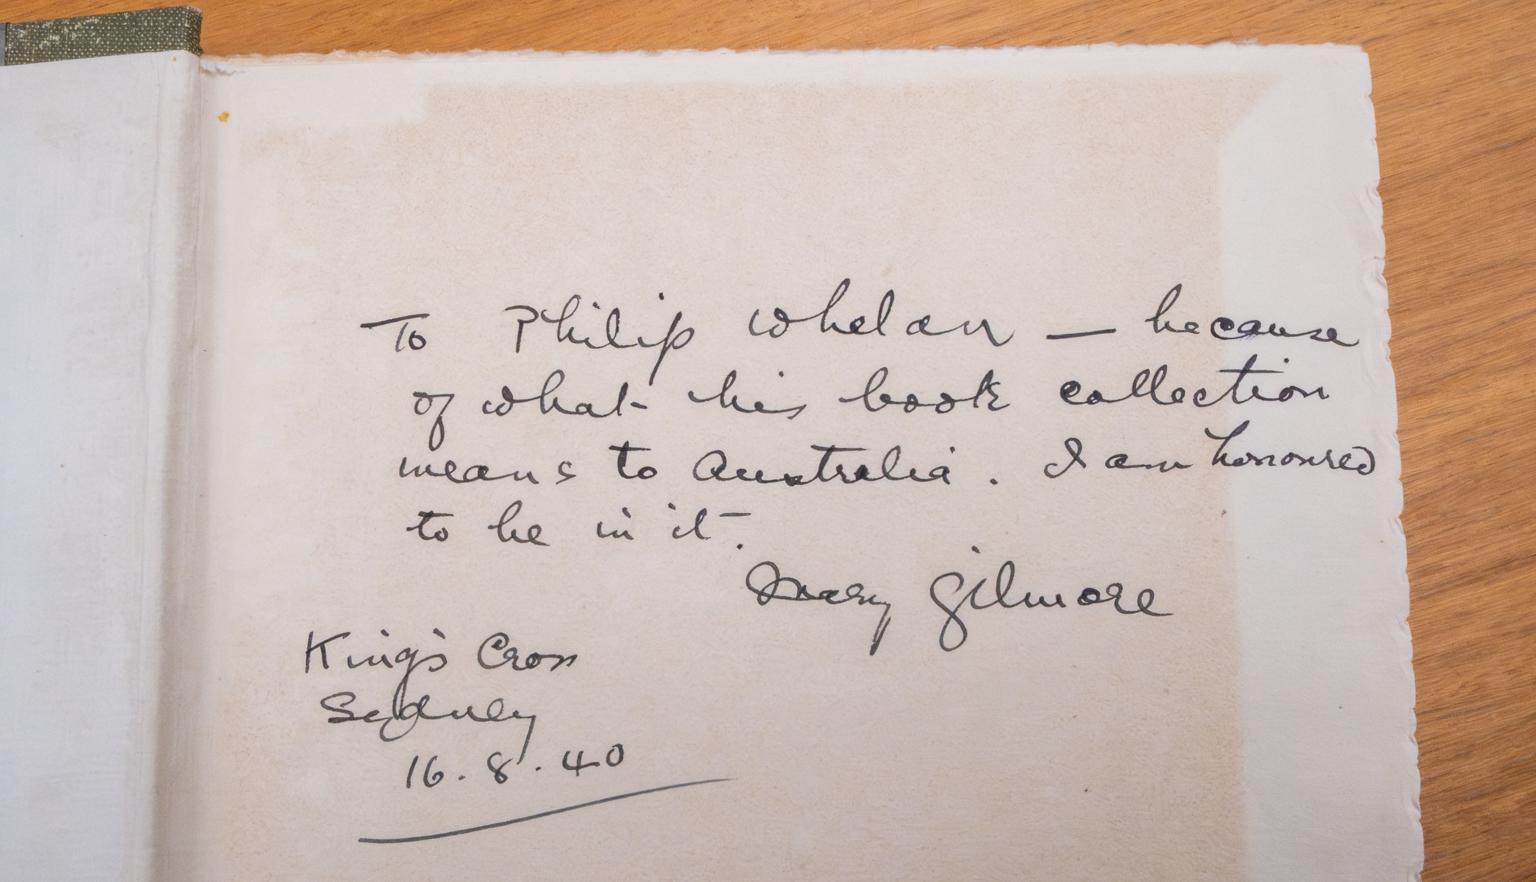 To Philip Whelan — because
of what his book collection
means to Australia. I am honoured
to be in it.
Mary Gilmore
King's Cross
Sydney
16.8.40